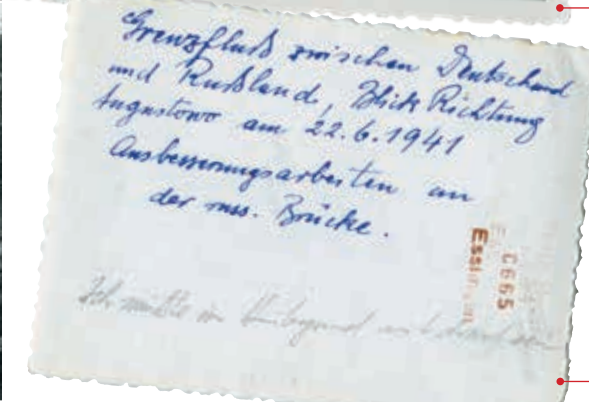 Grenzfluß zwischen Deutschand
und Rußland, Blick Richtung
Augustowo am 22.6.1941
Ausbesserungsarbeiten an
der russ. Brücke.
Ich
0665